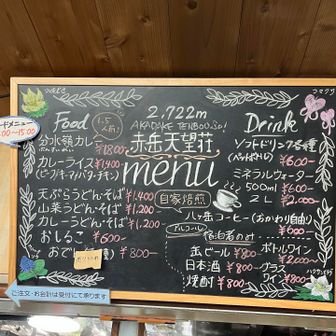 2,722m
AKADAKE TENBOUSOU
赤岳天望荘
menu
Food
1.5人前!
分水嶺カレー ¥1800
カレーライス ¥1,400
天ぷらうどん・そば ¥1,400
山菜うどん・そば ¥1,200
カレーうどん・そば ¥1,200
おしるこ ¥600
おでん ¥800
Drink
ソフトドリンク各種
(ペットボトル) ¥600
ミネラルウォーター
500ml ¥600
2L ¥2,000
自家焙煎
八ヶ岳コーヒー(おかわり自由)
¥600
アルコール
宿泊者のみ
缶ビール ¥800
日本酒 ¥800
焼酎 ¥800
ボトルワイン
¥2,000
グラスワイン ¥800
ご注文・お会計は受付にて承ります